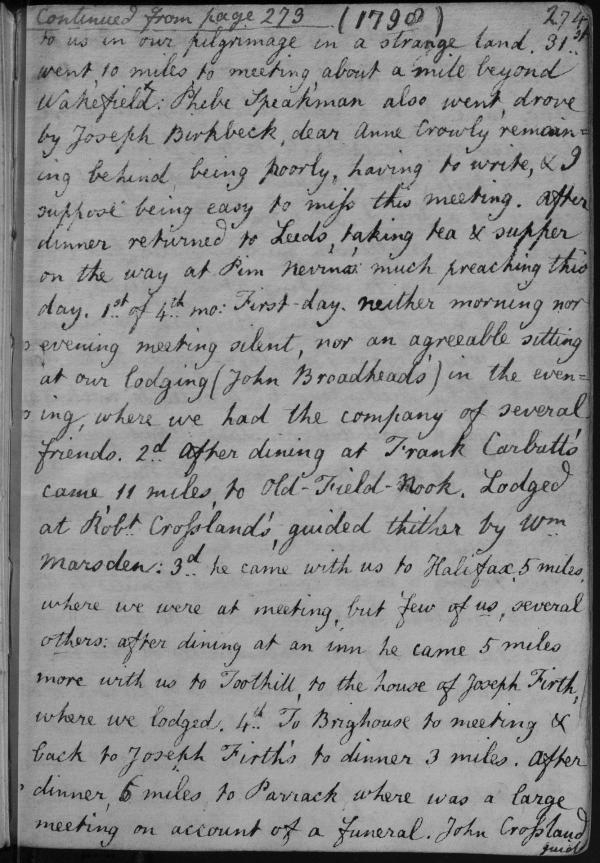 Continued from page 273 (1798) 274
to us in our pilgrimage in a strange land. 31st
went, 10 miles to meeting about a mile beyond
Wakefield: Phebe Speakman also went, drove
by Joseph Birkbeck, dear Anne Crowly remain=
ing behind, being poorly, having to write, & I
suppose being easy to miss this meeting. After
dinner returned to Leeds, taking tea & supper
on the way at Pim Nevins: much preaching this
day. 1st of 4th mo: First-day. neither morning nor
evening meeting silent, nor an agreeable sitting
at our lodging (John Broadhead's) in the even=
ing, where we had the company of several
friends. 2d After dining at Frank Carbutt's
came 11 miles, to Old-Field-Nook. Lodged
at Robt Crossland's, guided thither by Wm
Marsden: 3d he came with us to Halifax, 5 miles,
where we were at meeting, but few of us, several
others: after dining at an inn he came 5 miles
more with us to Toothill, to the house of Joseph Firth,
where we lodged. 4th To Brighouse to meeting &
back to Joseph Firth's to dinner 3 miles. After
dinner, 6 miles to Parrack where was a large
meeting on account of a funeral. John Crossland
guide